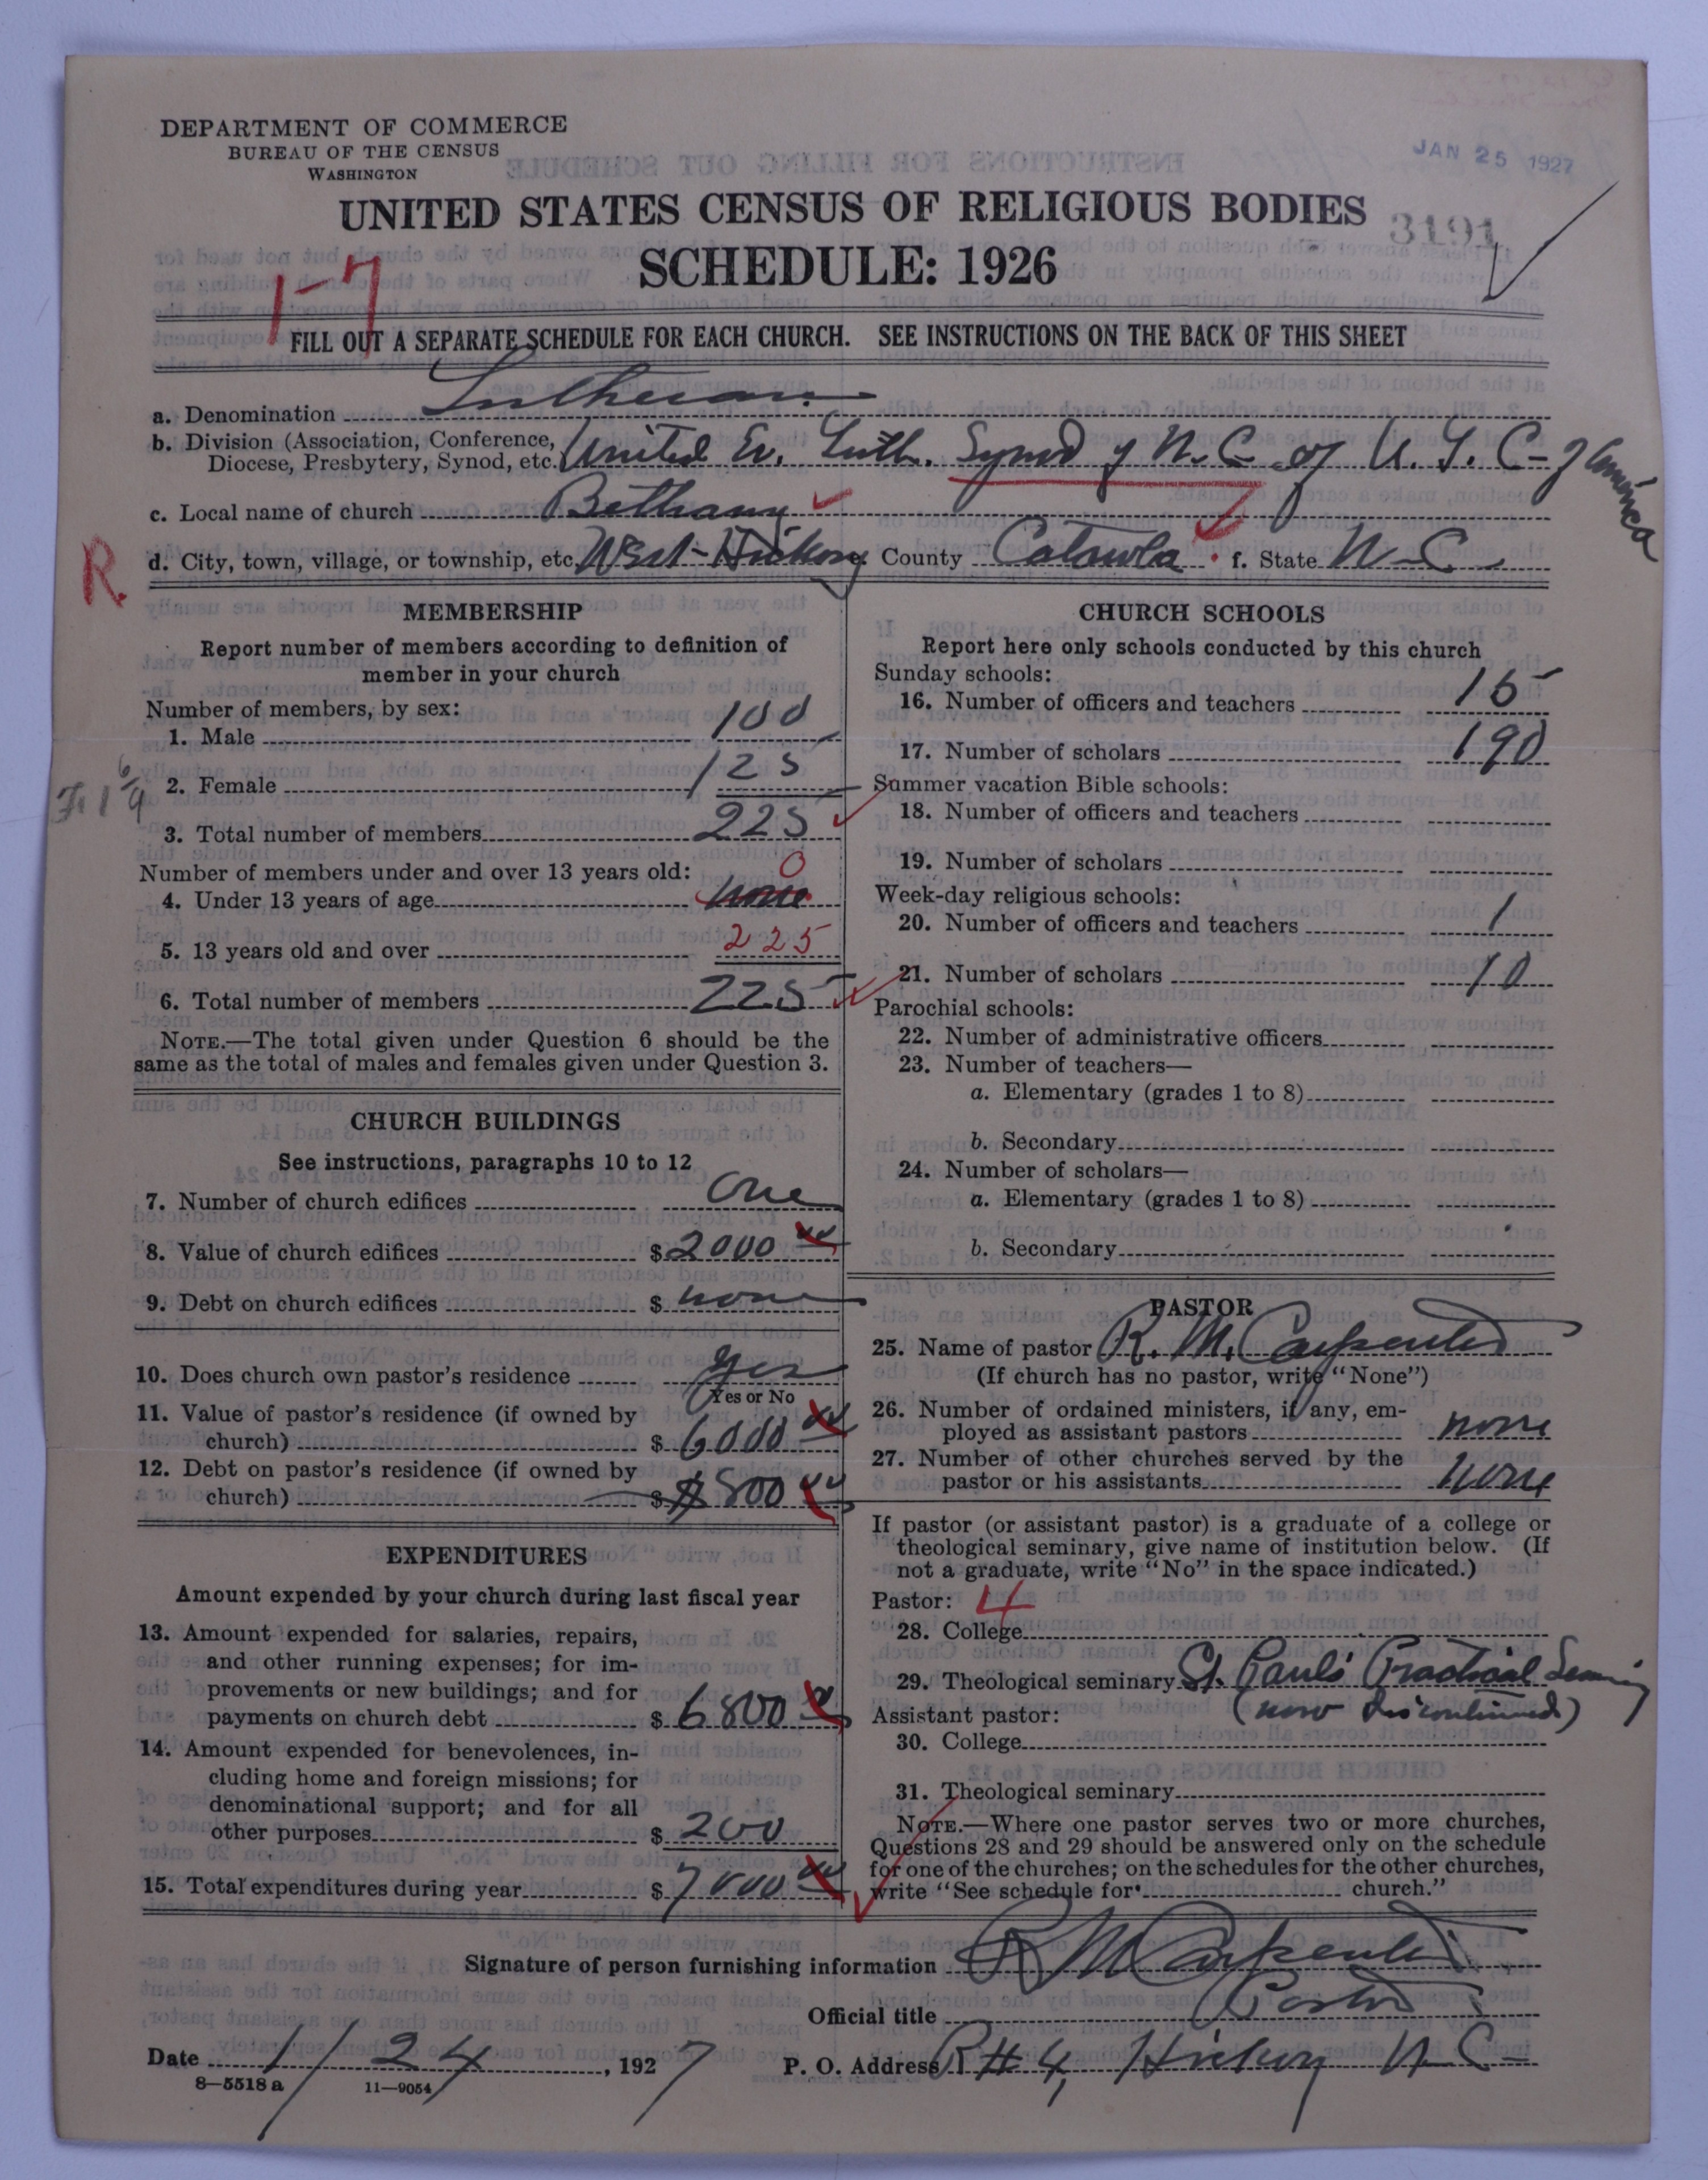 DEPARTMENT OF COMMERCE
BUREAU OF THE CENSUS
WASHINGTON
JAN 25 1927
UNITED STATES CENSUS OF RELIGIOUS BODIES
3191
SCHEDULE: 1926
1-7
FILL OUT A SEPARATE SCHEDULE FOR EACH CHURCH. SEE INSTRUCTIONS ON THE BACK OF THIS SHEET
a. Denomination Lutheran
b. Division (Association, Conference, Diocese, Presbytery, Synod, etc. United Ev. Luth. Synod of N.C. of U. L. C- of America
c. Local name of church Bethany
R. d. City, town, village, or township, etc. West-Hickory e. County Catawba f. State N-C
MEMBERSHIP
Report number of members according to definition of
member in your church
Number of members, by sex:
1. Male 100
2. Female 125
3. Total number of members 225
Number of members under and over 13 years old:
0
4. Under 13 years of age none
5. 13 years old and over 225
6. Total number of members 225
NOTE.—The total given under Question 6 should be the
same as the total of males and females given under Question 3.
CHURCH BUILDINGS
See instructions, paragraphs 10 to 12
7. Number of church edifices One
8. Value of church edifices $ 2000 00
9. Debt on church edifices $ none
10. Does church own pastor's residence Yes
Yes or No
11. Value of pastor's residence (if owned by
church) $ 6000 00
12. Debt on pastor's residence (if owned by
church) $ $ 800 00
EXPENDITURES
Amount expended by your church during last fiscal year
13. Amount expended for salaries, repairs,
and other running expenses; for im-
provements or new buildings; and for
payments on church debt $ 6800
14. Amount expended for benevolences, in-
cluding home and foreign missions; for
denominational support; and for all
other purposes $ 200
15. Total expenditures during year $ 7000 00
CHURCH SCHOOLS
Report here only schools conducted by this church
Sunday schools:
16. Number of officers and teachers 15
17. Number of scholars 190
Summer vacation Bible schools:
18. Number of officers and teachers
19. Number of scholars
Week-day religious schools:
20. Number of officers and teachers 1
21. Number of scholars 10
Parochial schools:
22. Number of administrative officers
23. Number of teachers—
a. Elementary (grades 1 to 8)
b. Secondary
24. Number of scholars—
a. Elementary (grades 1 to 8)
b. Secondary
PASTOR
25. Name of pastor R. M. Carpenter
(If church has no pastor, write "None")
26. Number of ordained ministers, if any, em-
ployed as assistant pastors none
27. Number of other churches served by the
pastor or his assistants none
If pastor (or assistant pastor) is a graduate of a college or
theological seminary, give name of institution below. (If
not a graduate, write "No" in the space indicated.)
Pastor: 4
28. College
29. Theological seminary St. Paul's Practical Seminary
Assistant pastor: (now discontinued)
30. College
31. Theological seminary
NOTE.—Where one pastor serves two or more churches,
Questions 28 and 29 should be answered only on the schedule
for one of the churches; on the schedules for the other churches,
write "See schedule for church."
Signature of person furnishing information R M Carpenter
Official title Pastor
Date 1/24, 1927 P. O. Address R#4, Hickory N C-
8—5518a 11—9054